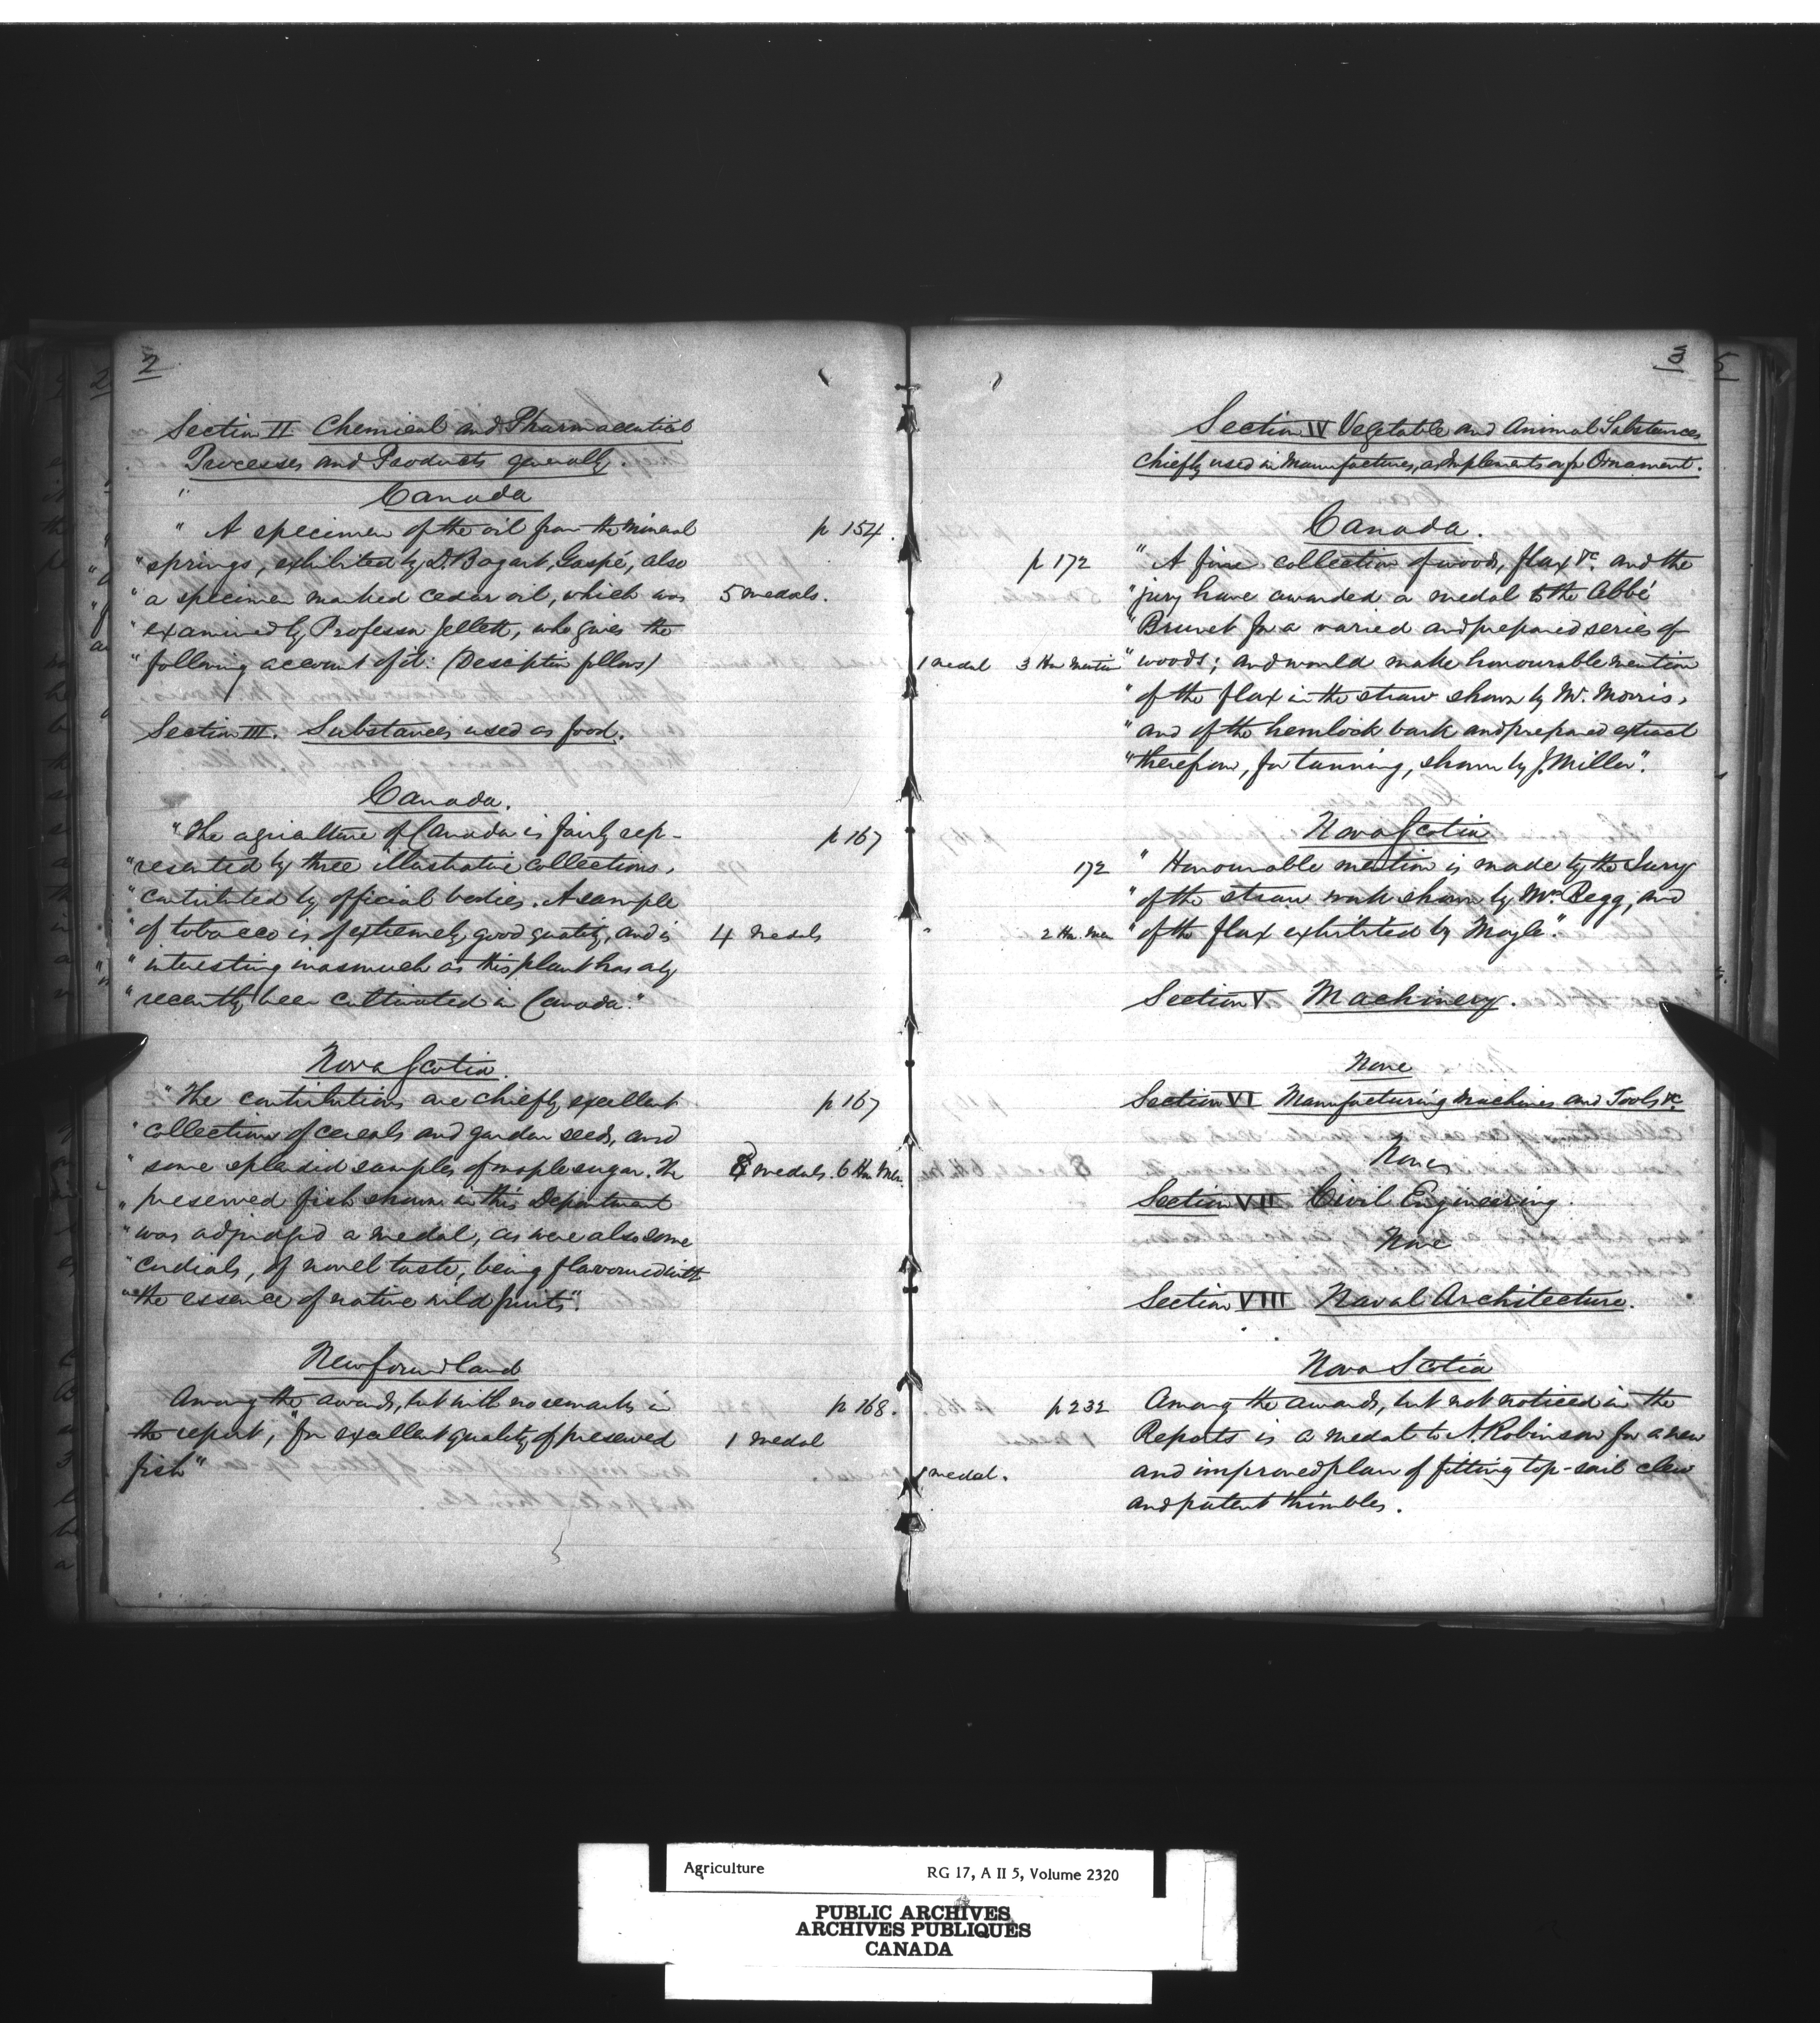 2
Section II Chemical and Pharmaceutical
Processes and Products generally.
Canada
" A specimen of the oil from the mineral p 154.
" springs, exhibited by D. Bogart, Gaspé, also
" a specimen marked cedar oil, which was 5 medals.
" examined by Professor Jellett, who gives the
" following account of it: (Desciption follows)
Section III. Substances used as food.
Canada.
" The agriculture of Canada is fairly rep- p 167
" resented by three illustrative collections,
" contributed by official bodies. A sample
" of tobacco is of extremely good quality, and is 4 medals
" interesting inasmuch as this plant has only
" recently been cultivated in Canada."
Nova Scotia.
" The contributions are chiefly excellent p 167
" collections of cereals and garden seeds, and
" some splendid samples of maple sugar. The 8 medals. 6 Hon Men.
" preserved fish shown in this Department
" was adjudged a medal, as were also some
" cordials, of novel taste, being flavoured with
" the essence of native wild fruits".
Newfoundland
Among the awards, but with no remarks in p 168.
the report, "for excellent quality of preserved 1 medal
fish"
3
Section IV Vegetable and Animal Substances
Chiefly used in Manufactures, as Implements or for Ornament.
Canada.
p 172 " A fine collection of woods, flax &c. and the
" jury have awarded a medal to the Abbé
" Brunet for a varied and prepared series of
1 medal 3 Hon Mention " woods; and would make honourable mention
" of the flax in the straw shown by Mr. Morris,
" and of the hemlock bark and prepared extract
" therefrom, for tanning, shown by J. Miller".
Nova Scotia
172 " Honourable mention is made by the Jury
" of the straw work shown by Mrs Begg, and
" 2 Hon. Men " of the flax exhibited by Moyle".
Section V Machinery.
None
Section VI Manufacturing Machines and Tools &c
None
Section VII Civil Engineering.
None
Section VIII Naval Architecture.
Nova Scotia
p 232 Among the awards, but not noticed in the
Reports is a medal to A. Robinson for a new
1 medal. and improved plan of fitting top-sail clew
and patent thimbles.
5
Agriculture RG 17, A II 5, Volume 2320
PUBLIC ARCHIVES
ARCHIVES PUBLIQUES
CANADA